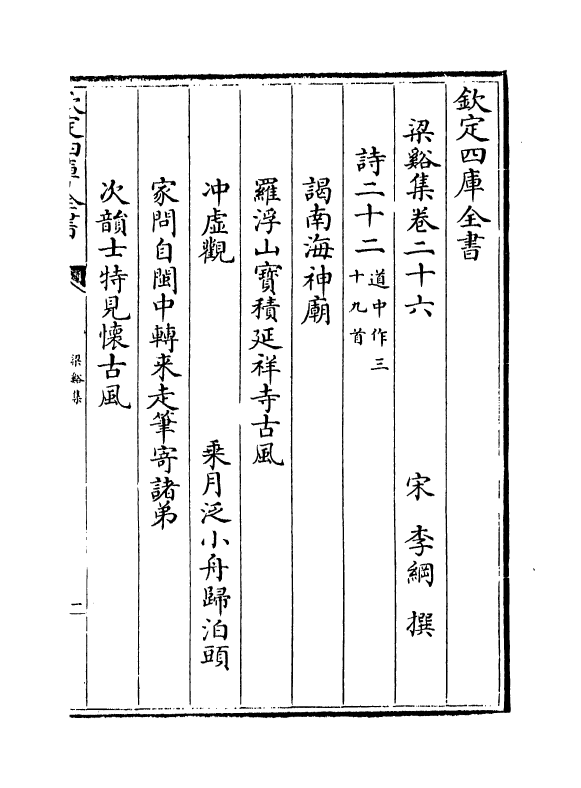 欽定四庫全書
梁谿集卷二十六
宋 李綱 撰
詩二十二 道中作三十九首
謁南海神廟
羅浮山寶積延祥寺古風
冲虛觀 乗月泛小舟歸泊頭
家問自閩中轉來走筆寄諸弟
次韻士特見懷古風
欽定四庫全書
梁谿集